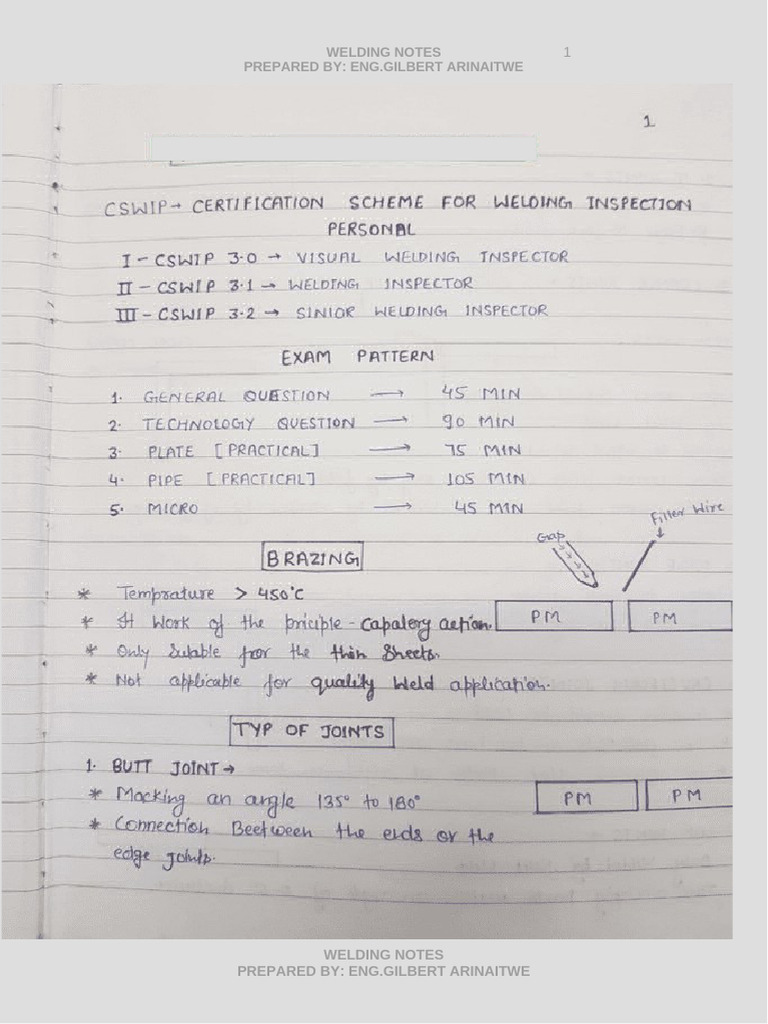 WELDING NOTES 1
PREPARED BY: ENG.GILBERT ARINAITWE
1
CSWIP → CERTIFICATION SCHEME FOR WELDING INSPECTION
PERSONAL
I - CSWIP 3.0 → VISUAL WELDING INSPECTOR
II - CSWIP 3.1 → WELDING INSPECTOR
III - CSWIP 3.2 → SINIOR WELDING INSPECTOR
EXAM PATTERN
1. GENERAL QUESTION → 45 MIN
2. TECHNOLOGY QUESTION → 90 MIN
3. PLATE [PRACTICAL] → 75 MIN
4. PIPE [PRACTICAL] → 105 MIN
5. MICRO → 45 MIN
Filter Wire
Gap
BRAZING
* Temprature > 450°C
* It work of the priciple - capalery action.
PM PM
* Only Sutable from the thin Sheets.
* Not applicable for quality Weld application.
TYP OF JOINTS
1. BUTT JOINT →
* Macking an angle 135° to 180°
PM PM
* Connection Beetween the ends or the
edge joints.
WELDING NOTES
PREPARED BY: ENG.GILBERT ARINAITWE